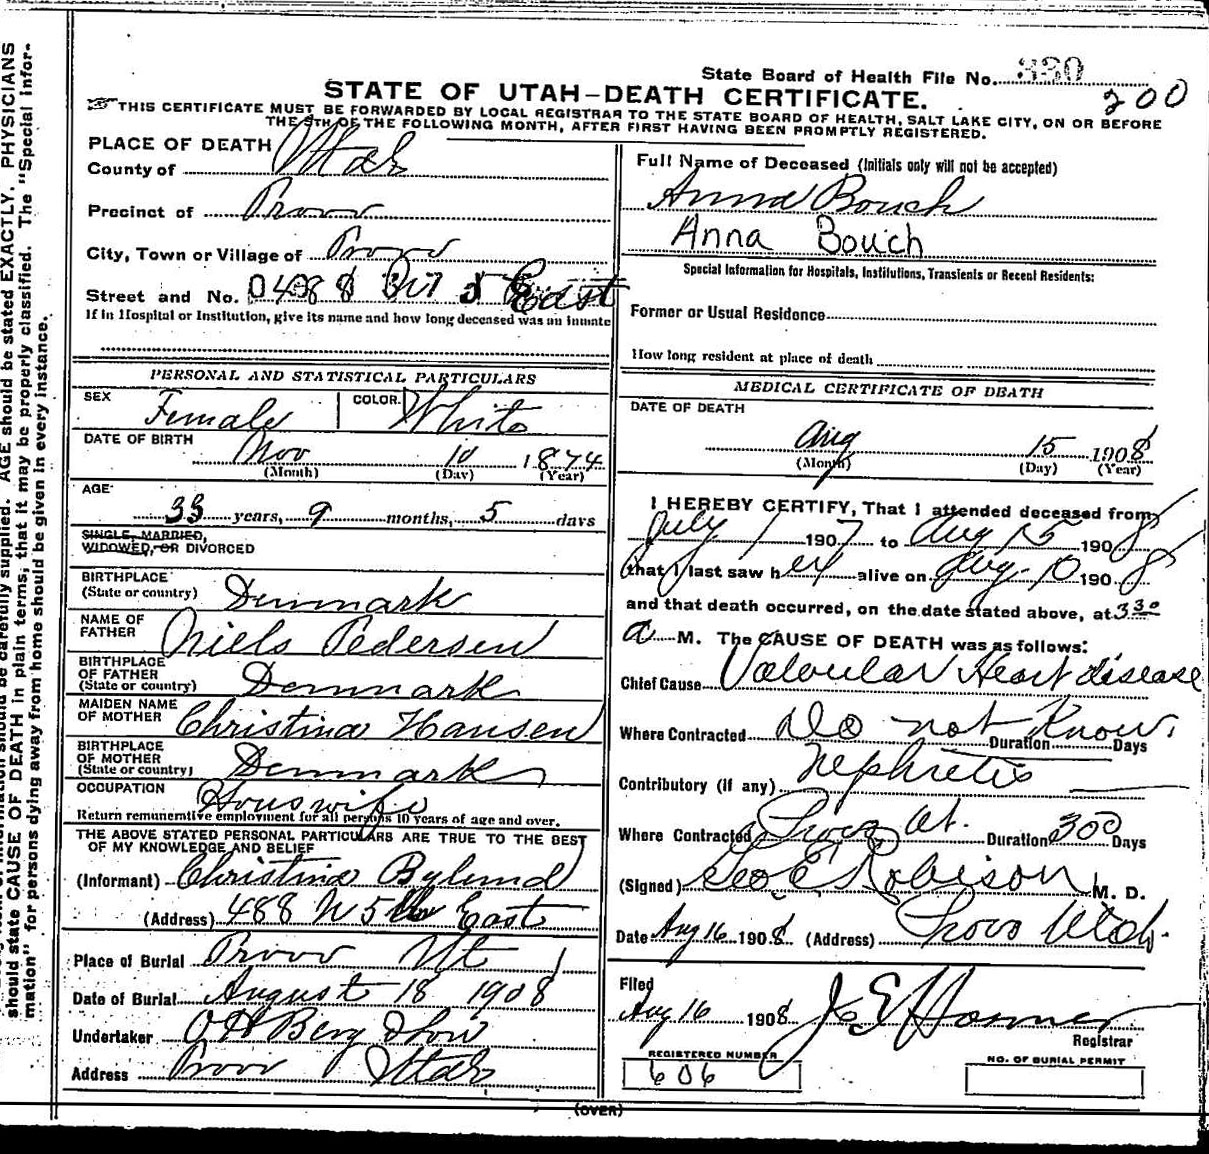 State Board of Health File No. 330
200
STATE OF UTAH-DEATH CERTIFICATE.
THIS CERTIFICATE MUST BE FORWARDED BY LOCAL REGISTRAR TO THE STATE BOARD OF HEALTH, SALT LAKE CITY, ON OR BEFORE
THE 5TH OF THE FOLLOWING MONTH, AFTER FIRST HAVING BEEN PROMPTLY REGISTERED.
PLACE OF DEATH
County of Utah
Precinct of Provo
City, Town or Village of Provo
Street and No. 488 5 East
If in Hospital or Institution, give its name and how long deceased was an inmate
PERSONAL AND STATISTICAL PARTICULARS
SEX Female COLOR. White
DATE OF BIRTH Nov 10 1874
(Month) (Day) (Year)
AGE 33 years, 9 months, 5 days
SINGLE, MARRIED,
WIDOWED, OR DIVORCED
BIRTHPLACE
(State or country) Denmark
NAME OF
FATHER Niels Pedersen
BIRTHPLACE
OF FATHER
(State or country) Denmark
MAIDEN NAME
OF MOTHER Christina Hansen
BIRTHPLACE
OF MOTHER
(State or country) Denmark
OCCUPATION Houswife
Return remunerative employment for all persons 10 years of age and over.
THE ABOVE STATED PERSONAL PARTICULARS ARE TRUE TO THE BEST
OF MY KNOWLEDGE AND BELIEF
(Informant) Christina Bylund
(Address) 488 N 5 East
Place of Burial Provo Ut
Date of Burial August 18 1908
Undertaker O H Berg
Address Provo Utah
Full Name of Deceased (Initials only will not be accepted)
Anna Bouch
Anna Bouch
Special Information for Hospitals, Institutions, Transients or Recent Residents:
Former or Usual Residence
How long resident at place of death
MEDICAL CERTIFICATE OF DEATH
DATE OF DEATH
Aug 15 1908
(Month) (Day) (Year)
I HEREBY CERTIFY, That I attended deceased from
July 1 1907 to Aug 15 1908
that I last saw her alive on Aug. 10 1908
and that death occurred, on the date stated above, at 3 30
a M. The CAUSE OF DEATH was as follows:
Chief Cause Valvular Heart disease
Where Contracted Do not Know. Duration Days
Contributory (if any) Nephretis
Where Contracted Provo Ut. Duration 300 Days
(Signed) Geo E Robison M. D.
Date Aug 16 1908 (Address) Provo Utah.
Filed
Aug 16 1908 J E Hosmer
Registrar
REGISTERED NUMBER
606
NO. OF BURIAL PERMIT
(OVER)
should state CAUSE OF DEATH in plain terms, that it may be properly classified. The "Special Infor-
mation" for persons dying away from home should be given in every instance.